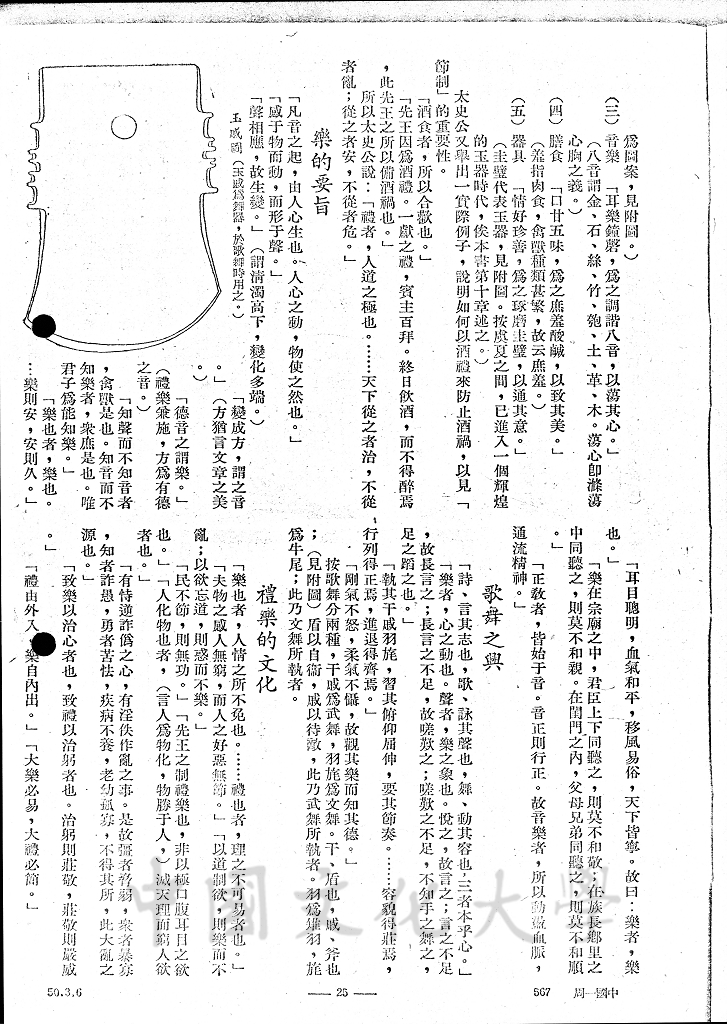 爲圖案，見附圖。）
（三）音樂　「耳樂鐘磬，爲之調諧八音，以蕩其心。」
（八音謂金、石、絲、竹、匏、土、革、木。蕩心卽滌蕩
心胸之義。）
（四）膳食　「口甘五味，爲之庶羞酸鹹，以致其美。」
（羞指肉食，禽獸種類甚繁，故云庶羞。）
（五）器具　「情好珍善，爲之琢磨圭璧，以通其意。」
（圭璧代表玉器，見附圖。按虞夏之間，已進入一個輝煌
的玉器時代，俟本書第十章述之。）
太史公又舉出一實際例子，說明如何以酒禮來防止酒禍，以見「
節制」的重要性。
「酒食者，所以合歡也。」
「先王因爲酒禮。一獻之禮，賓主百拜。終日飲酒，而不得醉焉
，此先王之所以備酒禍也。」
所以太史公說：「禮者，人道之極也。……天下從之者治，不從
者亂；從之者安，不從者危。」
樂的要旨
「凡音之起，由人心生也。人心之動，物使之然也。」
「感于物而動，而形于聲。」
「聲相應，故生變。」（謂清濁高下，變化多端。）
玉戚圖（玉戚爲舞器，於歌舞時用之。）
「變成方，謂之音
。」（方猶言文章之美
。）
「德音之謂樂。」
（禮樂兼施，方爲有德
之音。）
「知聲而不知音者
，禽獸是也。知音而不
知樂者，衆庶是也。唯
君子爲能知樂。」
「樂也者，樂也。
…樂則安，安則久。」
「耳目聰明，血氣和平，移風易俗，天下皆寧。故曰：樂者，樂
也。」
「樂在宗廟之中，君臣上下同聽之，則莫不和敬；在族長鄉里之
中同聽之，則莫不和親。在閨門之內，父母兄弟同聽之，則莫不和順
。」
「正敎者，皆始于音。音正則行正。故音樂者，所以動盪血脈，
通流精神。」
歌舞之興
「詩、言其志也，歌、詠其聲也，舞、動其容也，三者本乎心。」
「樂者，心之動也。聲者，樂之象也。悅之，故言之；言之不足
，故長言之；長言之不足，故嗟歎之；嗟歎之不足，不知手之舞之，
足之蹈之也。」
「執其干戚羽旄，習其俯仰屈伸，要其節奏。……容貌得莊焉，
行列得正焉，進退得齊焉。」
「剛氣不怒，柔氣不懾，故觀其樂而知其德。」
按歌舞分兩種，干戚爲武舞，羽旄爲文舞。干、盾也，戚、斧也
；（見附圖）盾以自衞，戚以待敵，此乃武舞所執者。羽爲雉羽，旄
爲牛尾；此乃文舞所執者。
禮樂的文化
「樂也者，人情之所不免也。……禮也者，理之不可易者也。」
「夫物之感人無窮，而人之好惡無節。」「以道制欲，則樂而不
亂；以欲忘道，則惑而不樂。」
「民不節，則無功。」「先王之制禮樂也，非以極口腹耳目之欲
也。」「人化物也者，（言人爲物化，物勝于人，）滅天理而窮人欲
者也。」
「有悖逆詐僞之心，有淫佚作亂之事。是故彊者脅弱，衆者暴寡
，知者詐愚，勇者苦怯，疾病不養，老幼孤寡，不得其所，此大亂之
源也。」
「致樂以治心者也，致禮以治躬者也。治躬則莊敬，莊敬則嚴威
。」
「禮由外入，樂自內出。」「大樂必易，大禮必簡。」
中國文化大學
50.3.6
— 25 —
567
周一國中